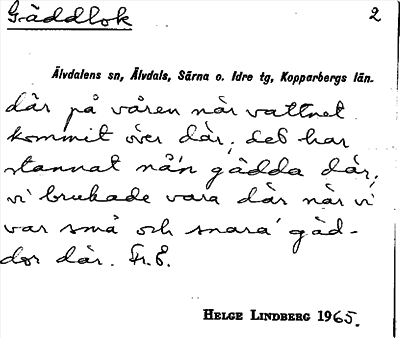 Gäddlok 2
Älvdalens sn, Älvdals, Särna o. Idre tg, Kopparbergs län.
där på våren när vattnet
kommit över där, det har
stannat nå'n gädda där,
vi brukade vara där när vi
var små och snara' gäd-
dor där. Fr. E.
HELGE LINDBERG 1965.